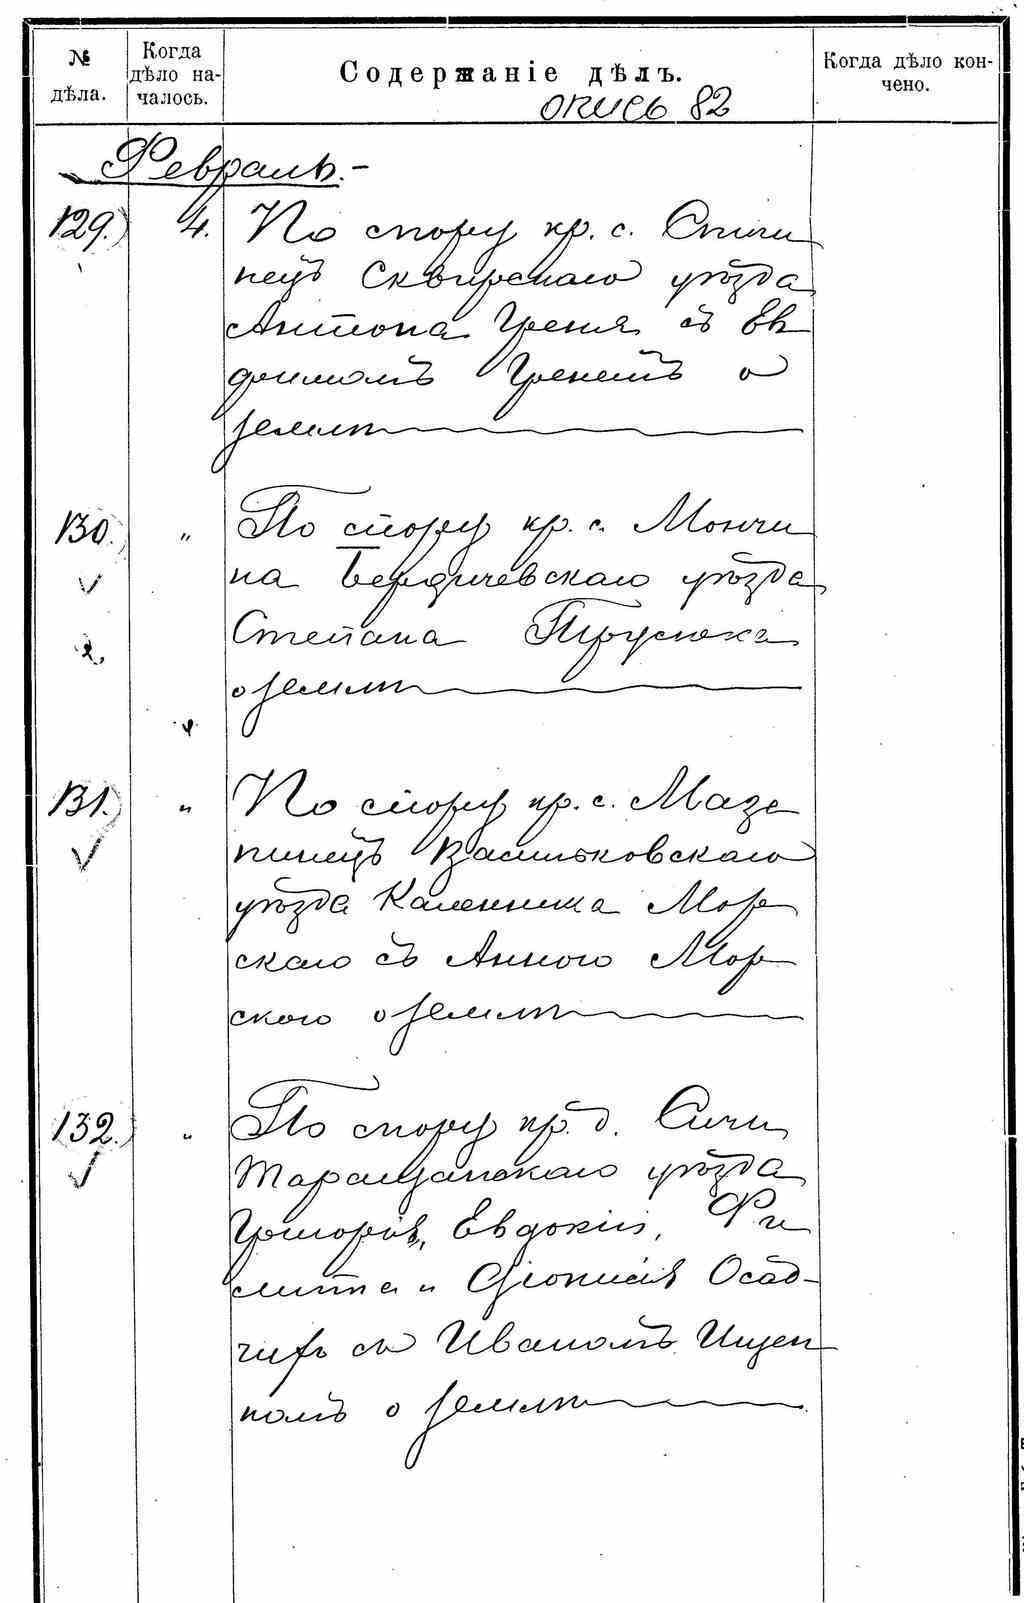 № дѣла.
Когда дѣло на-
чалось.
Содержаніе дѣлъ.
Когда дѣло кон-
чено.
опись 82
Февраль.-
129. 4. По спору кр. с. Спичи
нецъ Сквирскаго уѣзда
Антона Греня съ Ев
фимомъ Гренемъ о
землѣ
130. " По спору кр. с. Мончи
на Бердичевскаго уѣзда
Степана Трусюка
о землѣ
131. " По спору кр. с. Мазе
пинецъ Васильковскаго
уѣзда Каленника Мор
скаго съ Анною Мор
ского о землѣ
132. " По спору кр. д. Сичи
Таращанскаго уѣзда
Григорія, Евдокіи, Фи
липпа и Діонисія Осад-
чихъ съ Иваномъ Ищен
комъ о землѣ